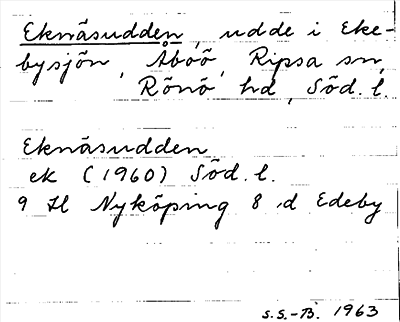 Eknäsudden, udde i Eke-
bysjön, Åböö, Ripsa sn,
Rönö hd, Söd. l.
Eknäsudden
ek (1960) Söd. l.
9 H Nyköping 8 d Edeby
S.S.-B. 1963